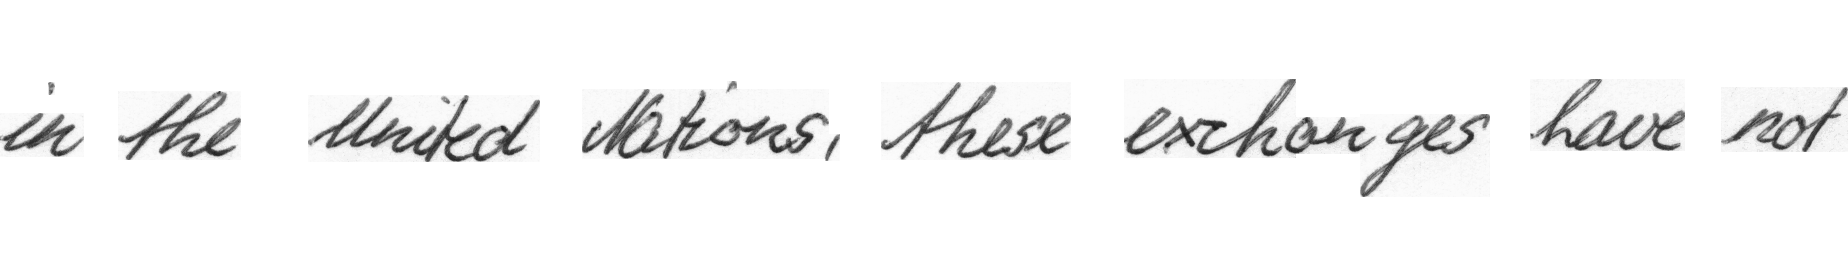 in the United Nations, these exchanges have not